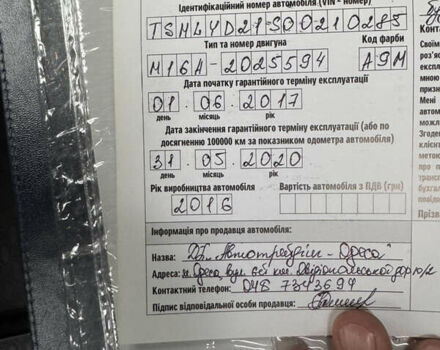 Ідентифікаційний номер автомобіля (VIN - номер)
TSMLYD21S00210285
Тип та номер двигуна Код фарби
M16A-2025594 A9M
Дата початку гарантійного терміну експлуатації
01.06.2017
день місяць рік
Дата закінчення гарантійного терміну експлуатації (або по
досягненню 100000 км за показником одометра автомобіля)
31.05.2020
день місяць рік
Рік виробництва автомобіля Вартість автомобіля з ПДВ (грн)
2016
Інформація про продавця автомобіля:
Назва: ДП „Автотрейдінг - Одеса"
Адреса: м. Одеса, вул.
Контактний телефон: 048 7343694
Підпис відповідальної особи продавця:
Конта
Своїм
роз'яс
експл
мною
призн
Мені
автом
можли
Згоде
клієнт
метою
про
трансп
бухга
повід
Прізв